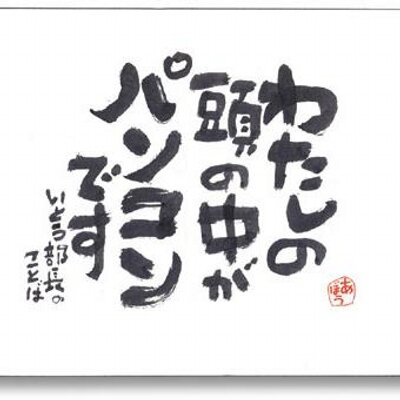 わたしの
頭の中が
パンコン
です
いとう部長の
ことば
あ
ぽう